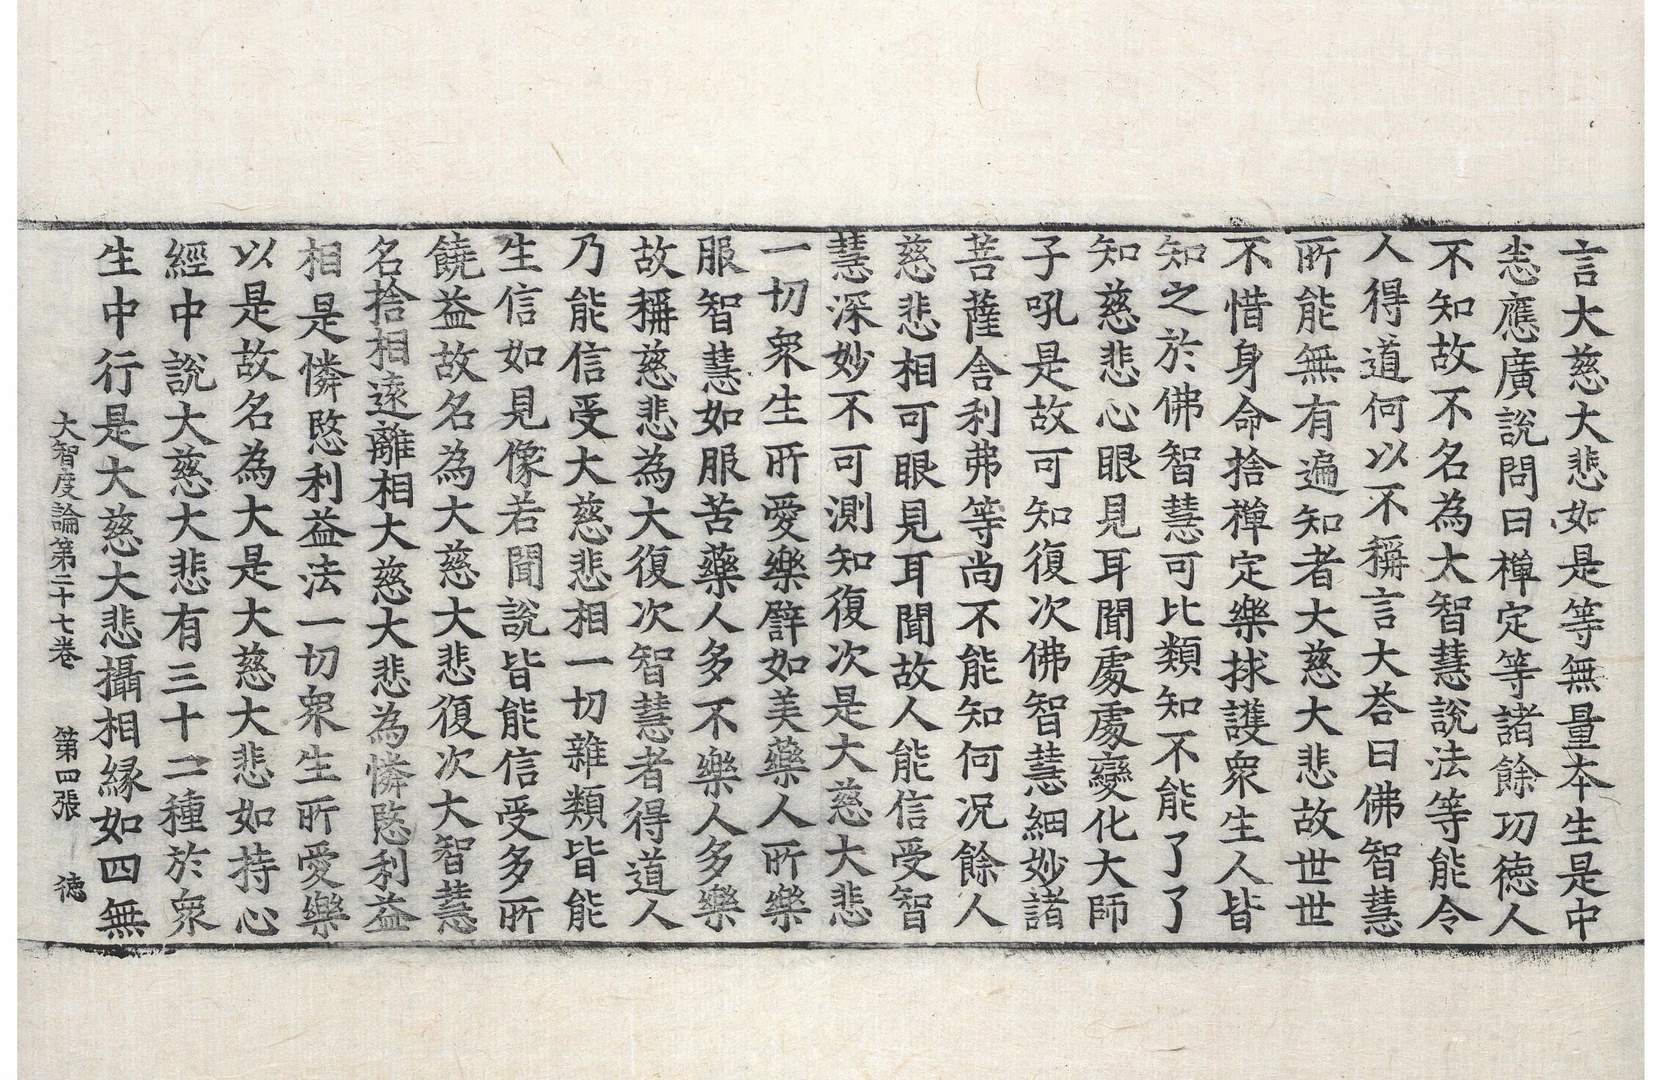 言大慈大悲如是等無量本生是中
盡應廣說問曰禪定等諸餘功德人
不知故不名為大智慧說法等能令
人得道何以不稱言大荅曰佛智慧
所能無有遍知者大慈大悲故世世
不惜身命捨禪定樂捄護衆生人皆
知之於佛智慧可比類知不能了了
知慈悲心眼見耳聞處處變化大師
子吼是故可知復次佛智慧細妙諸
菩薩舍利弗等尚不能知何况餘人
慈悲相可眼見耳聞故人能信受智
慧深妙不可測知復次是大慈大悲
一切衆生所愛樂譬如美藥人所樂
服智慧如服苦藥人多不樂人多樂
故稱慈悲為大復次智慧者得道人
乃能信受大慈悲相一切雜類皆能
生信如見像若聞說皆能信受多所
饒益故名為大慈大悲復次大智慧
名捨相遠離相大慈大悲為憐愍利益
相是憐愍利益法一切衆生所愛樂
以是故名為大是大慈大悲如持心
經中說大慈大悲有三十二種於衆
生中行是大慈大悲攝相緣如四無
大智度論第二十七卷 第四張 德